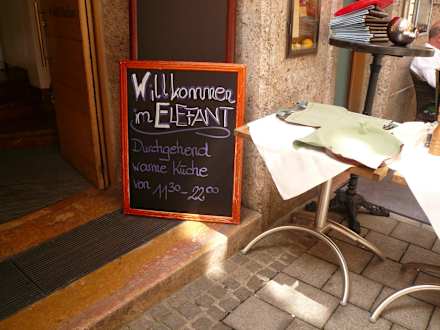 Willkommen
im ELEFANT
Durchgehend
warme Küche
von 11³⁰-22⁰⁰